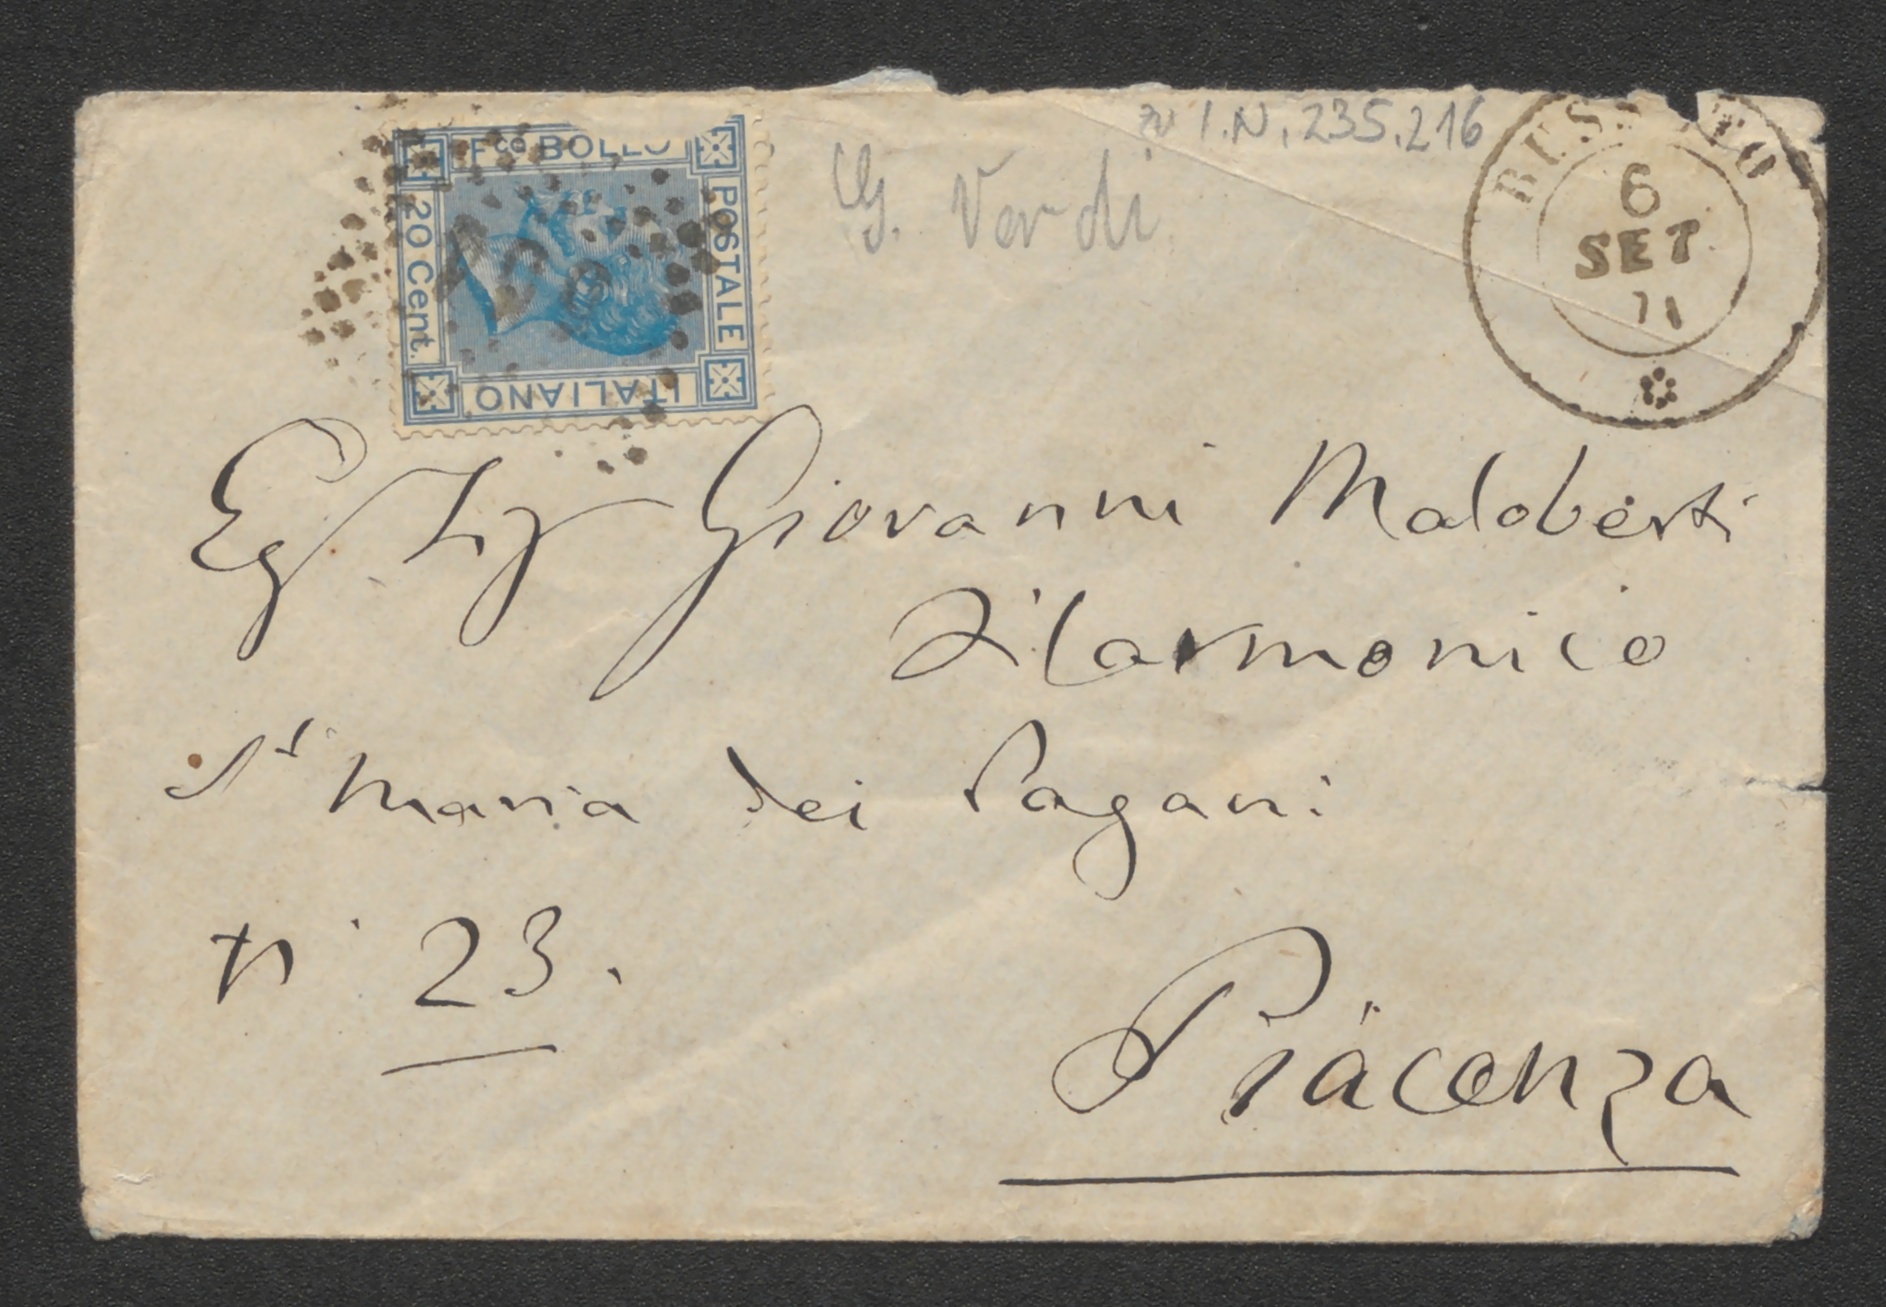 zu I.N. 235.216
G. Verdi
Fco BOLLO
POSTALE
ITALIANO
20 Cent.
BUSSETO
6
SET
71
Eg Sig Giovanni Maloberti
Filarmonico
Sta Maria dei Pagani
N. 23.
Piacenza